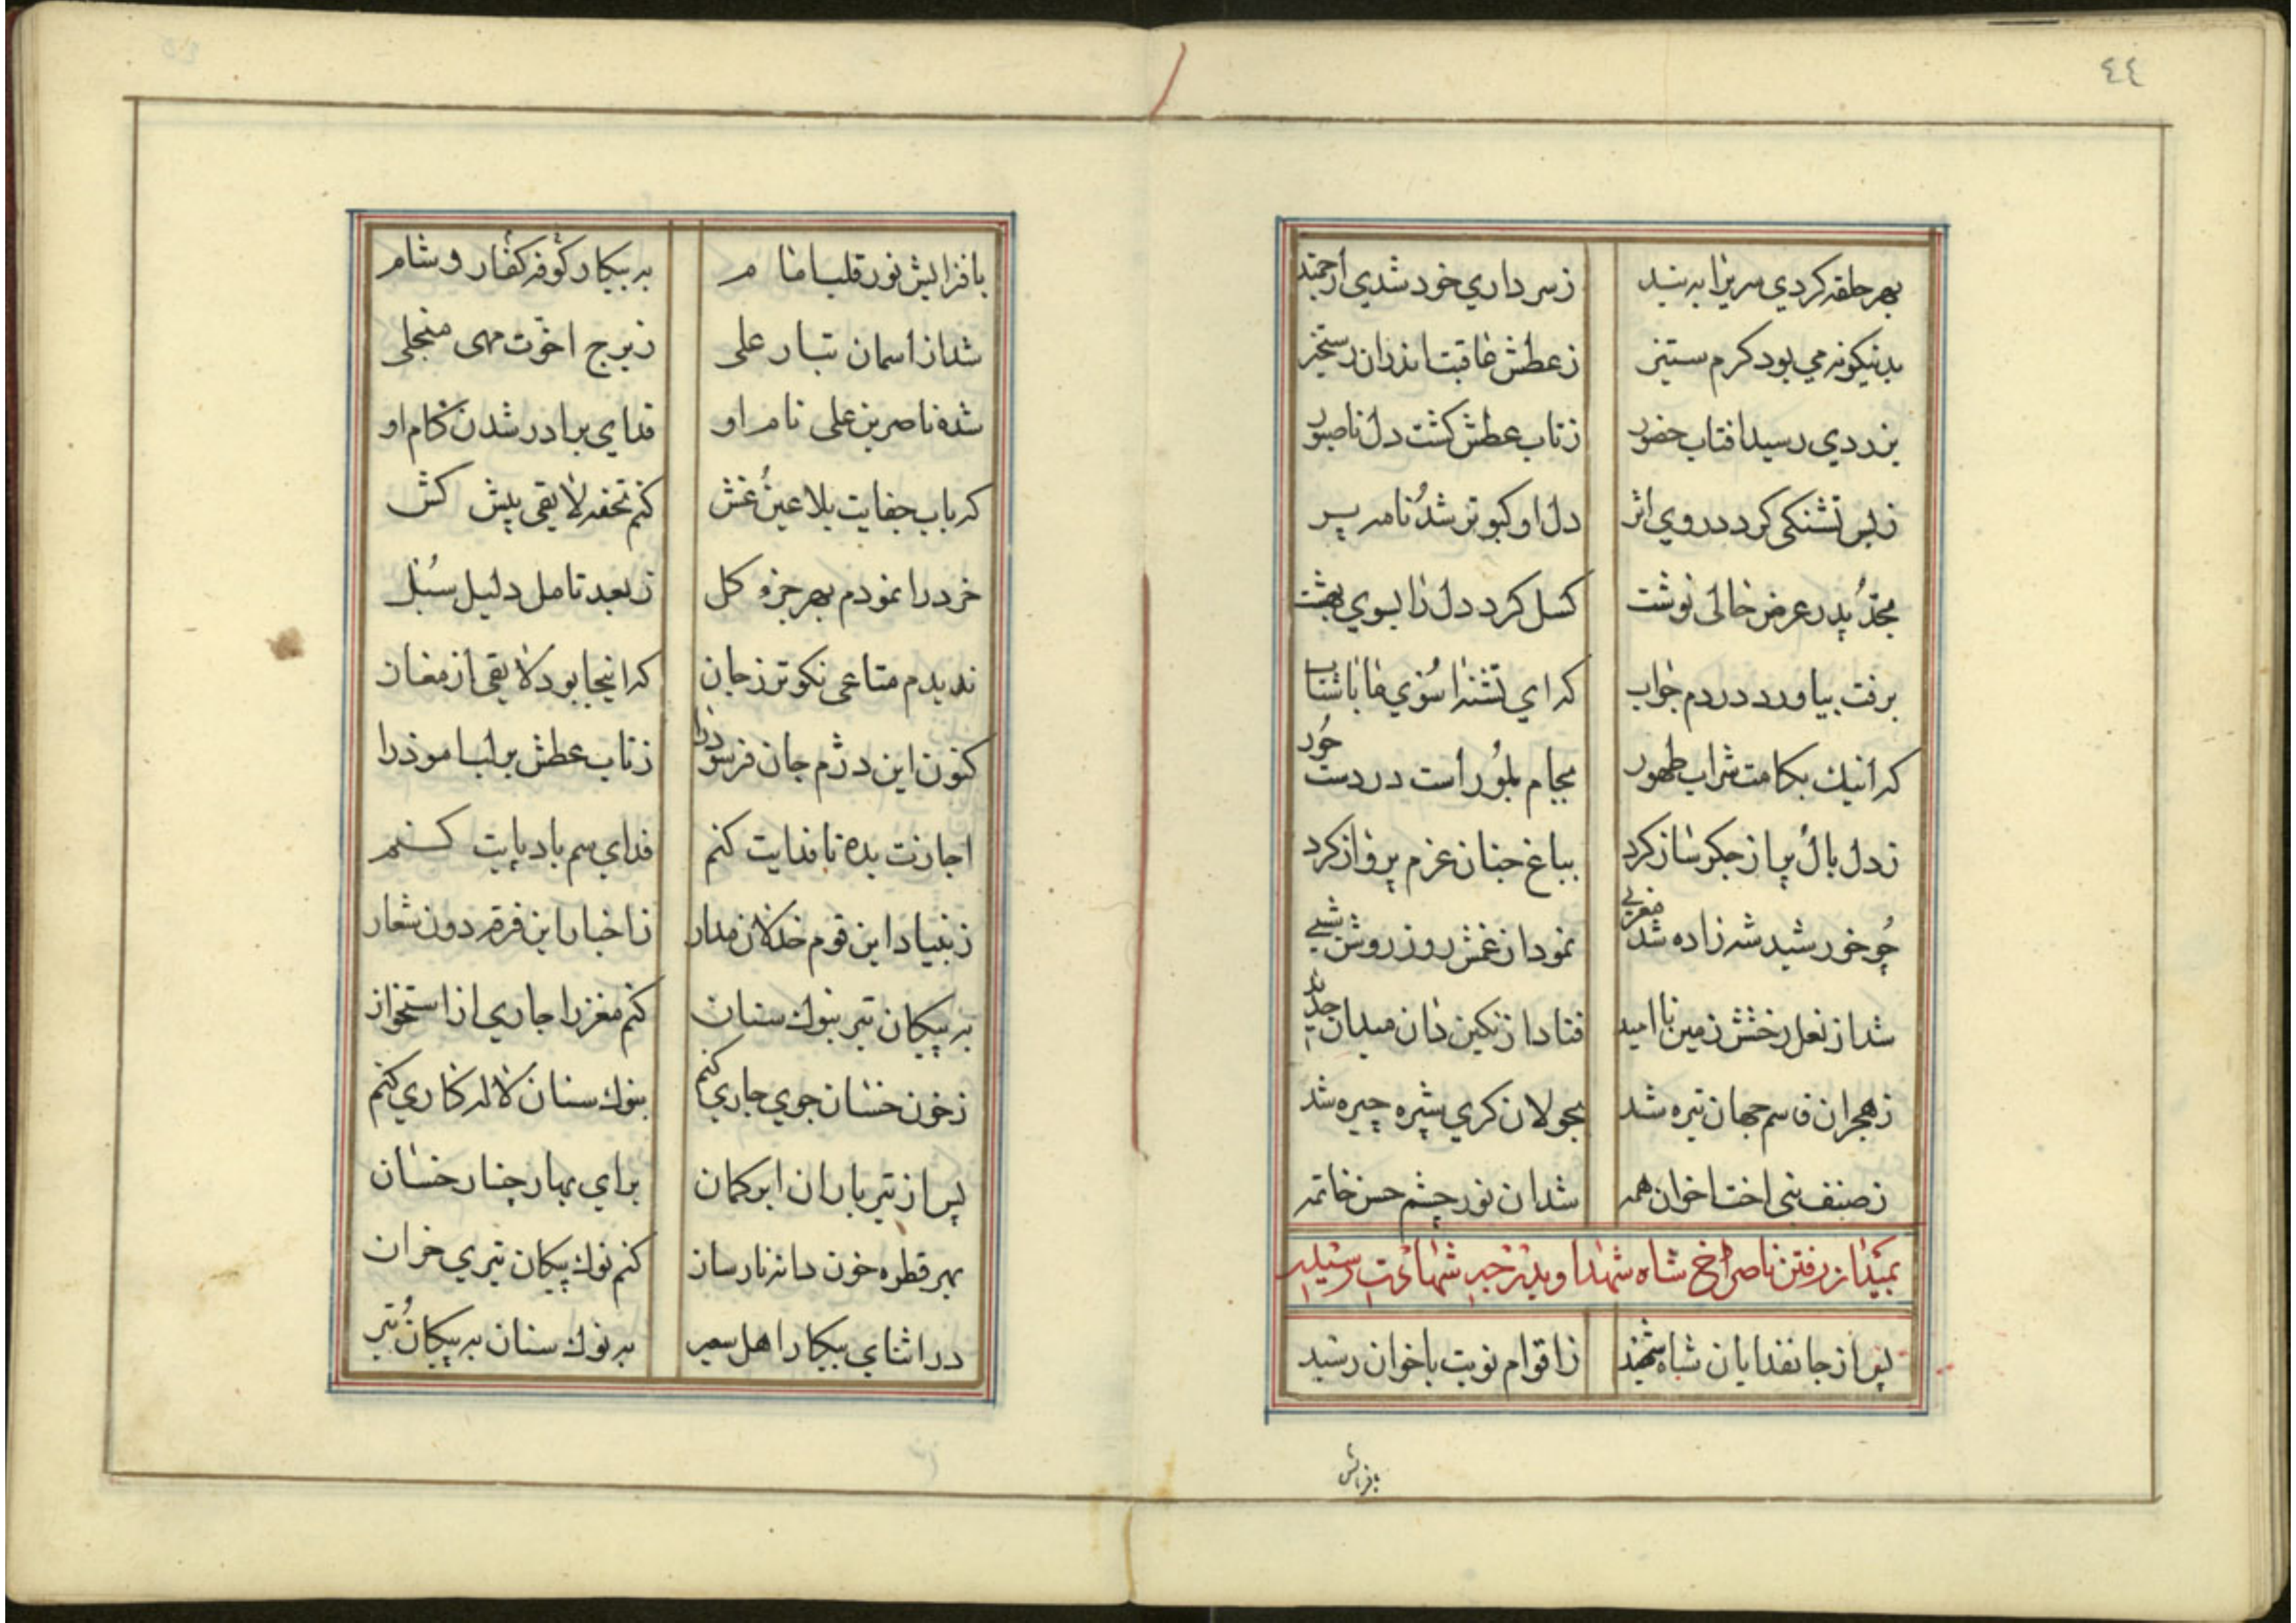 ٤٤
بهر حلقه كردي سريرا به بنيد زسر داري خود شدي ارجمند
بدنيكونه مي بود كرم ستيز زعطش عاقبت اندران رستخيز
بزردي رسيد افتاب حضور زتاب عطش كشت دل ناصبور
زبس تشنكى كرد در وي اثر دل او كبوتر شد نامه پر
بجد پدر عرض حالى نوشت كسل كرد دل را بسوي بهشت
برفت بياورد در دم جواب كه اي تشنه اسوي ما باشتاب
كه اينك بكامت شراب طهور بجام بلور است در دست حور
زدل بال پر از جكر ساز كرد بباغ جنان عزم پرواز كرد
چو خورشيد شه زاده شد مغربي نمود از غمش روز روشن شبي
شد از نعل رخشش زمين نا اميد فتاد از نكين دان ميدان
زهجران قاسم جهان تيره شد بجولان كري شپره چيره شد
زصنف بنى اخت اخوان همه شد ان نور چشم حسن خاتمه
بميدان رفتن ناصر اخ شاه شهدا و بدرجه شهادت رسيدن
پس از جانفدايان شاه شهيد زاقوام نوبت باخوان رسيد
بافزايش
بافزايش نور قلب امام به پيكار كوفه كفار و شام
شد از اسمان تبار على زبرج اخوت مهى منجلى
شده ناصر بن على نام او فداي برادر شدن كام او
كه باب جفايت بلا عين غش كنم تحفه لايقى پيش كش
خرد را نمودم بهر جزو كل زبعد تامل دليل سبل
نديدم متاعى نكوتر زجان كه اينجا بود لايقى ارمغان
كنون اين دژم جان فرسوده را زتاب عطش بر لب اموده را
اجازت بده تا فدايت كنم فداي سم باد پايت كنم
زبنياد اين قوم خذلان مدار زاخبار اين فرقه دون شعار
به پيكان تير بنوك سنان كنم مغز را جاري از استخوان
زخون خسان جوي جاري كنم بنوك سنان لاله كاري كنم
پس از تير باران ابر كمان براي بهار چنار خسان
بهر قطره خون دانه نارسان كنم نوك پيكان تيري خزان
در اثناي پيكار اهل سعير به نوك سنان به پيكان تير